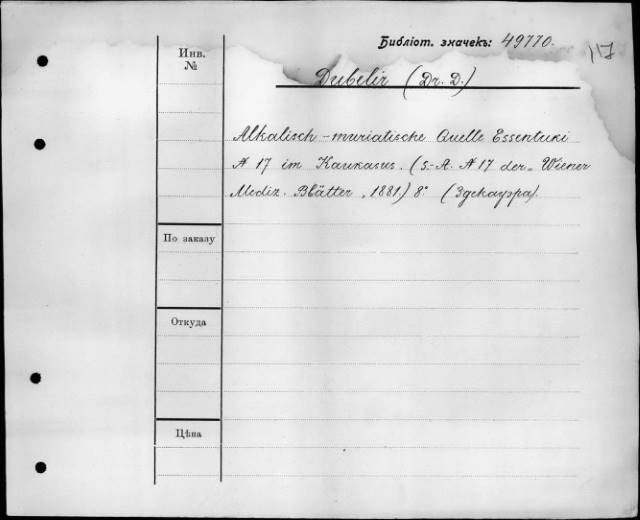 Библіот. значекъ: 49770.
Инв. №
Dubelir (Dr. D.)
Alkalisch-muriatische Quelle Essentuki
№ 17 im Kaukasus. (S.-A. № 17 der „Wiener
Mediz. Blätter„ 1881.) 8° (3 декауэра).
По заказу
Откуда
Цѣна